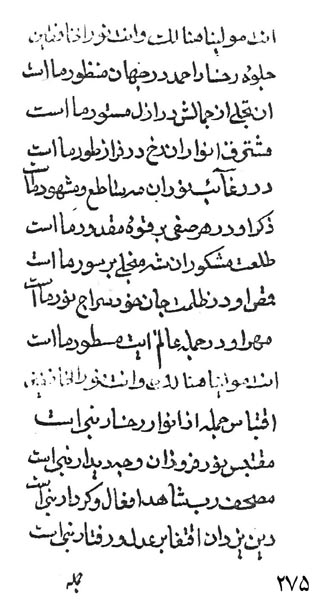 انت مولینا هنالک وانت نور الخافقین
جلوه رخسار احمد در جهان منظور ما است
ان تجلی از جمالش در ازل مستور ما است
مشرق انوار ان رخ در فراز طور ما است
در رغائب نور ان مه ساطع و مشهود ما است
ذکر او در هر صفی بر قوه مقدور ما است
طلعت مشکور ان شه منجلی بر سور ما است
فیض او در ظلمت جان خود سراج نور ما است
مهر او در جمله عالم ایت مسطور ما است
انت مولینا هنالک وانت نور الخافقین
اقتباس جمله از انوار رخسار نبی است
مقتبس نور فروزان وجه دیدار نبی است
مصحف رب شاهد افعال و کردار نبی است
دین یزدان اقتفا بر عدل و رفتار نبی است
جمله
۲۷۵